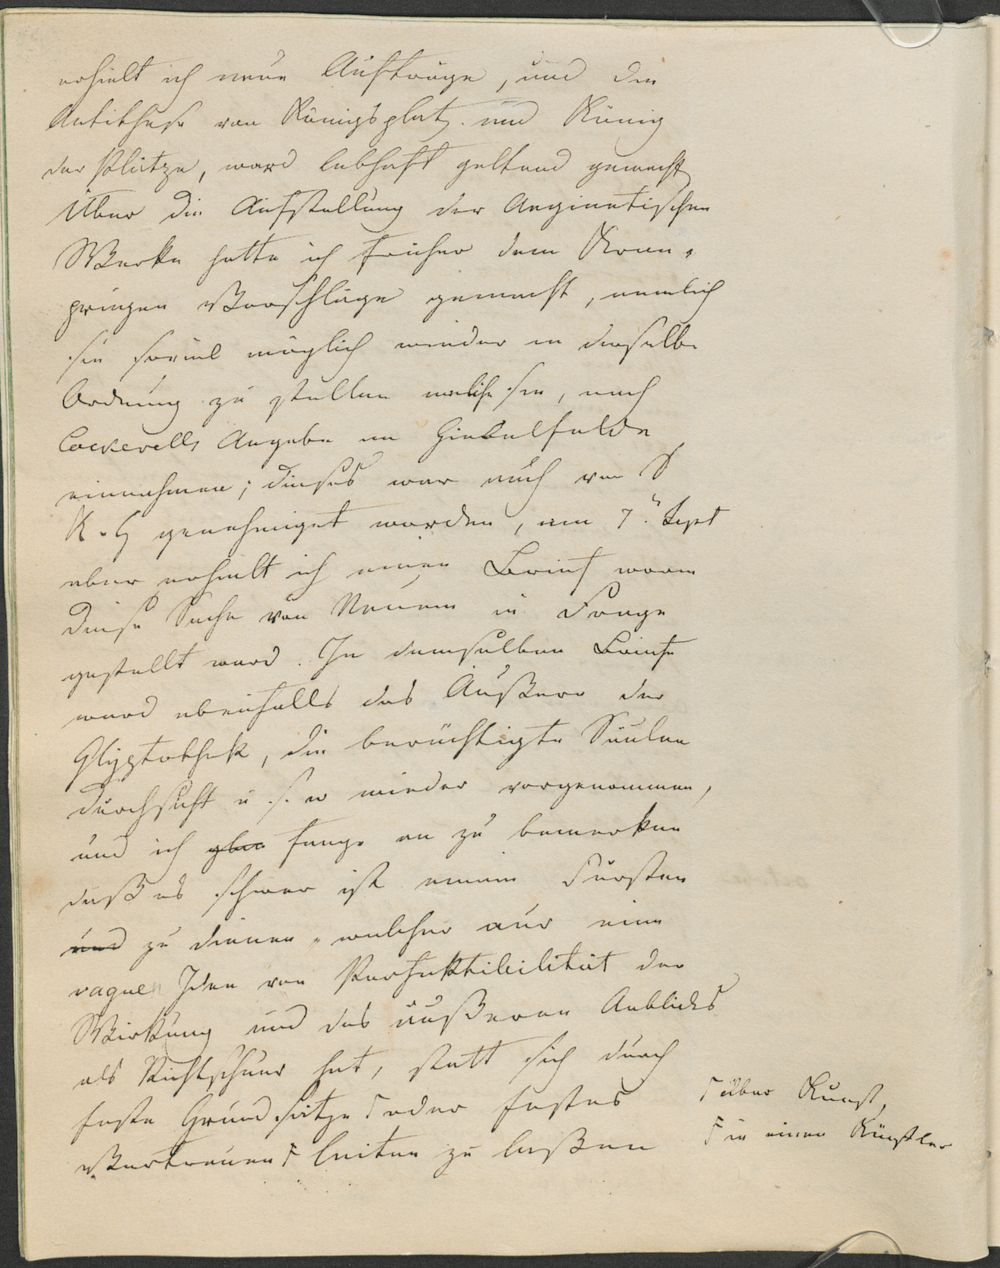 erhielt ich neue Aufträge, und die
Antithese von Königsplatz und König
der Plätze, ward lebhaft geltend gemacht
Über die Aufstellung der Aeginetischen
Werke hatte ich früher dem Kron-
prinzen Vorschläge gemacht, nemlich
sie soviel möglich wieder in dieselbe
Ordnung zu stellen welche sie, nach
Cockerells Angabe im Giebelfelde
einnahmen; dieses war auch von S
K. H genehmiget worden, am 7. Sept
aber erhielt ich einen Brief worin
diese Sache von Neuem in Frage
gestellt ward. In demselben Briefe
ward ebenfalls das Äußere der
Glyptothek, die berüchtigte Säulen
durchsicht u. s. w wieder vorgenommen,
und ich fange an zu bemerken
daß es schwer ist einem Fürsten
und zu dienen, welcher nur eine
vague Idee von Perfektibilität der
Wirkung und des äußeren Anblicks
als Richtschnur hat, statt sich durch
feste Grundsätze Γ oder festes
Vertrauen F leiten zu laßen
Γ über Kunst,
F in einen Künstler